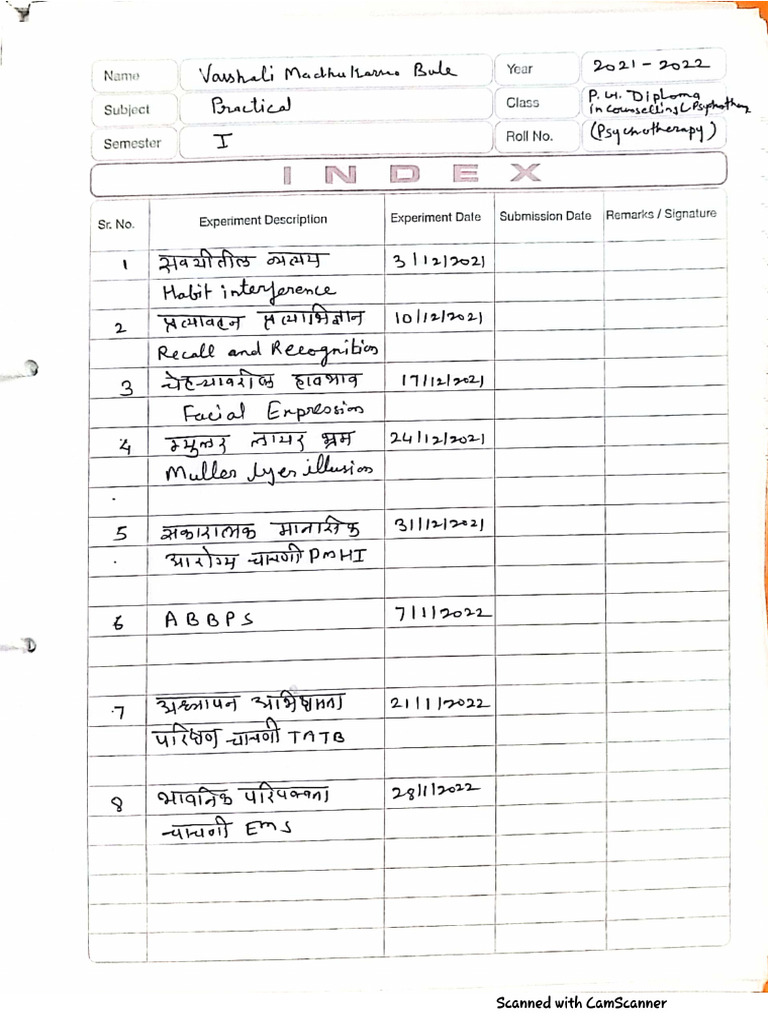 Name Vaishali Madhukarrao Bule Year 2021-2022
Subject Practical Class P.G. Diploma in Counselling (Psychotherapy
Semester I Roll No. (Psychotherapy)
INDEX
Sr. No. Experiment Description Experiment Date Submission Date Remarks / Signature
1 सवयीतील व्यत्यय 3/12/2021
Habit interference
2 प्रत्यावहन प्रत्याभिज्ञान 10/12/2021
Recall and Recognition
3 चेहऱ्यावरील हावभाव 17/12/2021
Facial Expression
4 म्युलर लायर भ्रम 24/12/2021
Muller lyer illusion
5 सकारात्मक मानसिक 31/12/2021
आरोग्य चाचणी PMHI
6 ABBPS 7/1/2022
7 अध्यापन अभिक्षमता 21/1/2022
परिक्षण चाचणी TATB
8 भावनिक परिपक्वता 28/1/2022
चाचणी EMS
Scanned with CamScanner